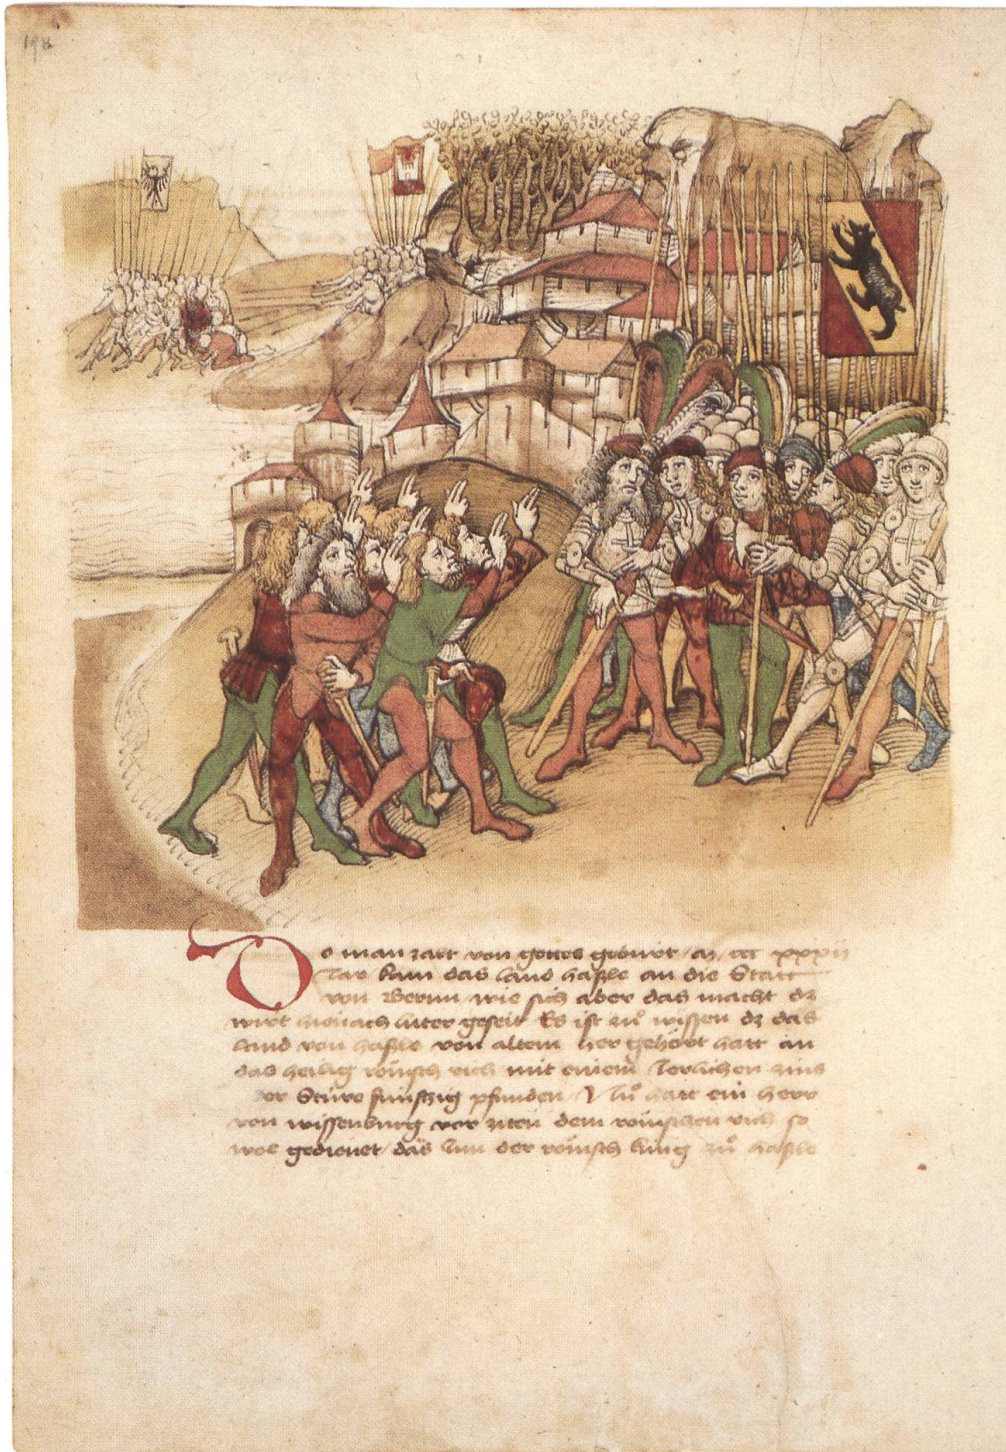 198
Do man zalt von gottes geburt m ccc xxxiij
Jar kam das land hasle an die Statt
von Bernn wie sich aber das macht dz
wirt hienach luter geseit Es ist zuͦ wissen dz das
land von hasle von altem her gehoͤrt hatt an
das heilig roͤmisch rich mit einem Jerlichen zins
der Stuͤre fuͤnfzig pfunden Nuͦ hatt ein herr
von wissenburg vor ziten dem roͤmschen rich so
wol gedienet das Im der roͤmsch kuͤng zuͦ hasle